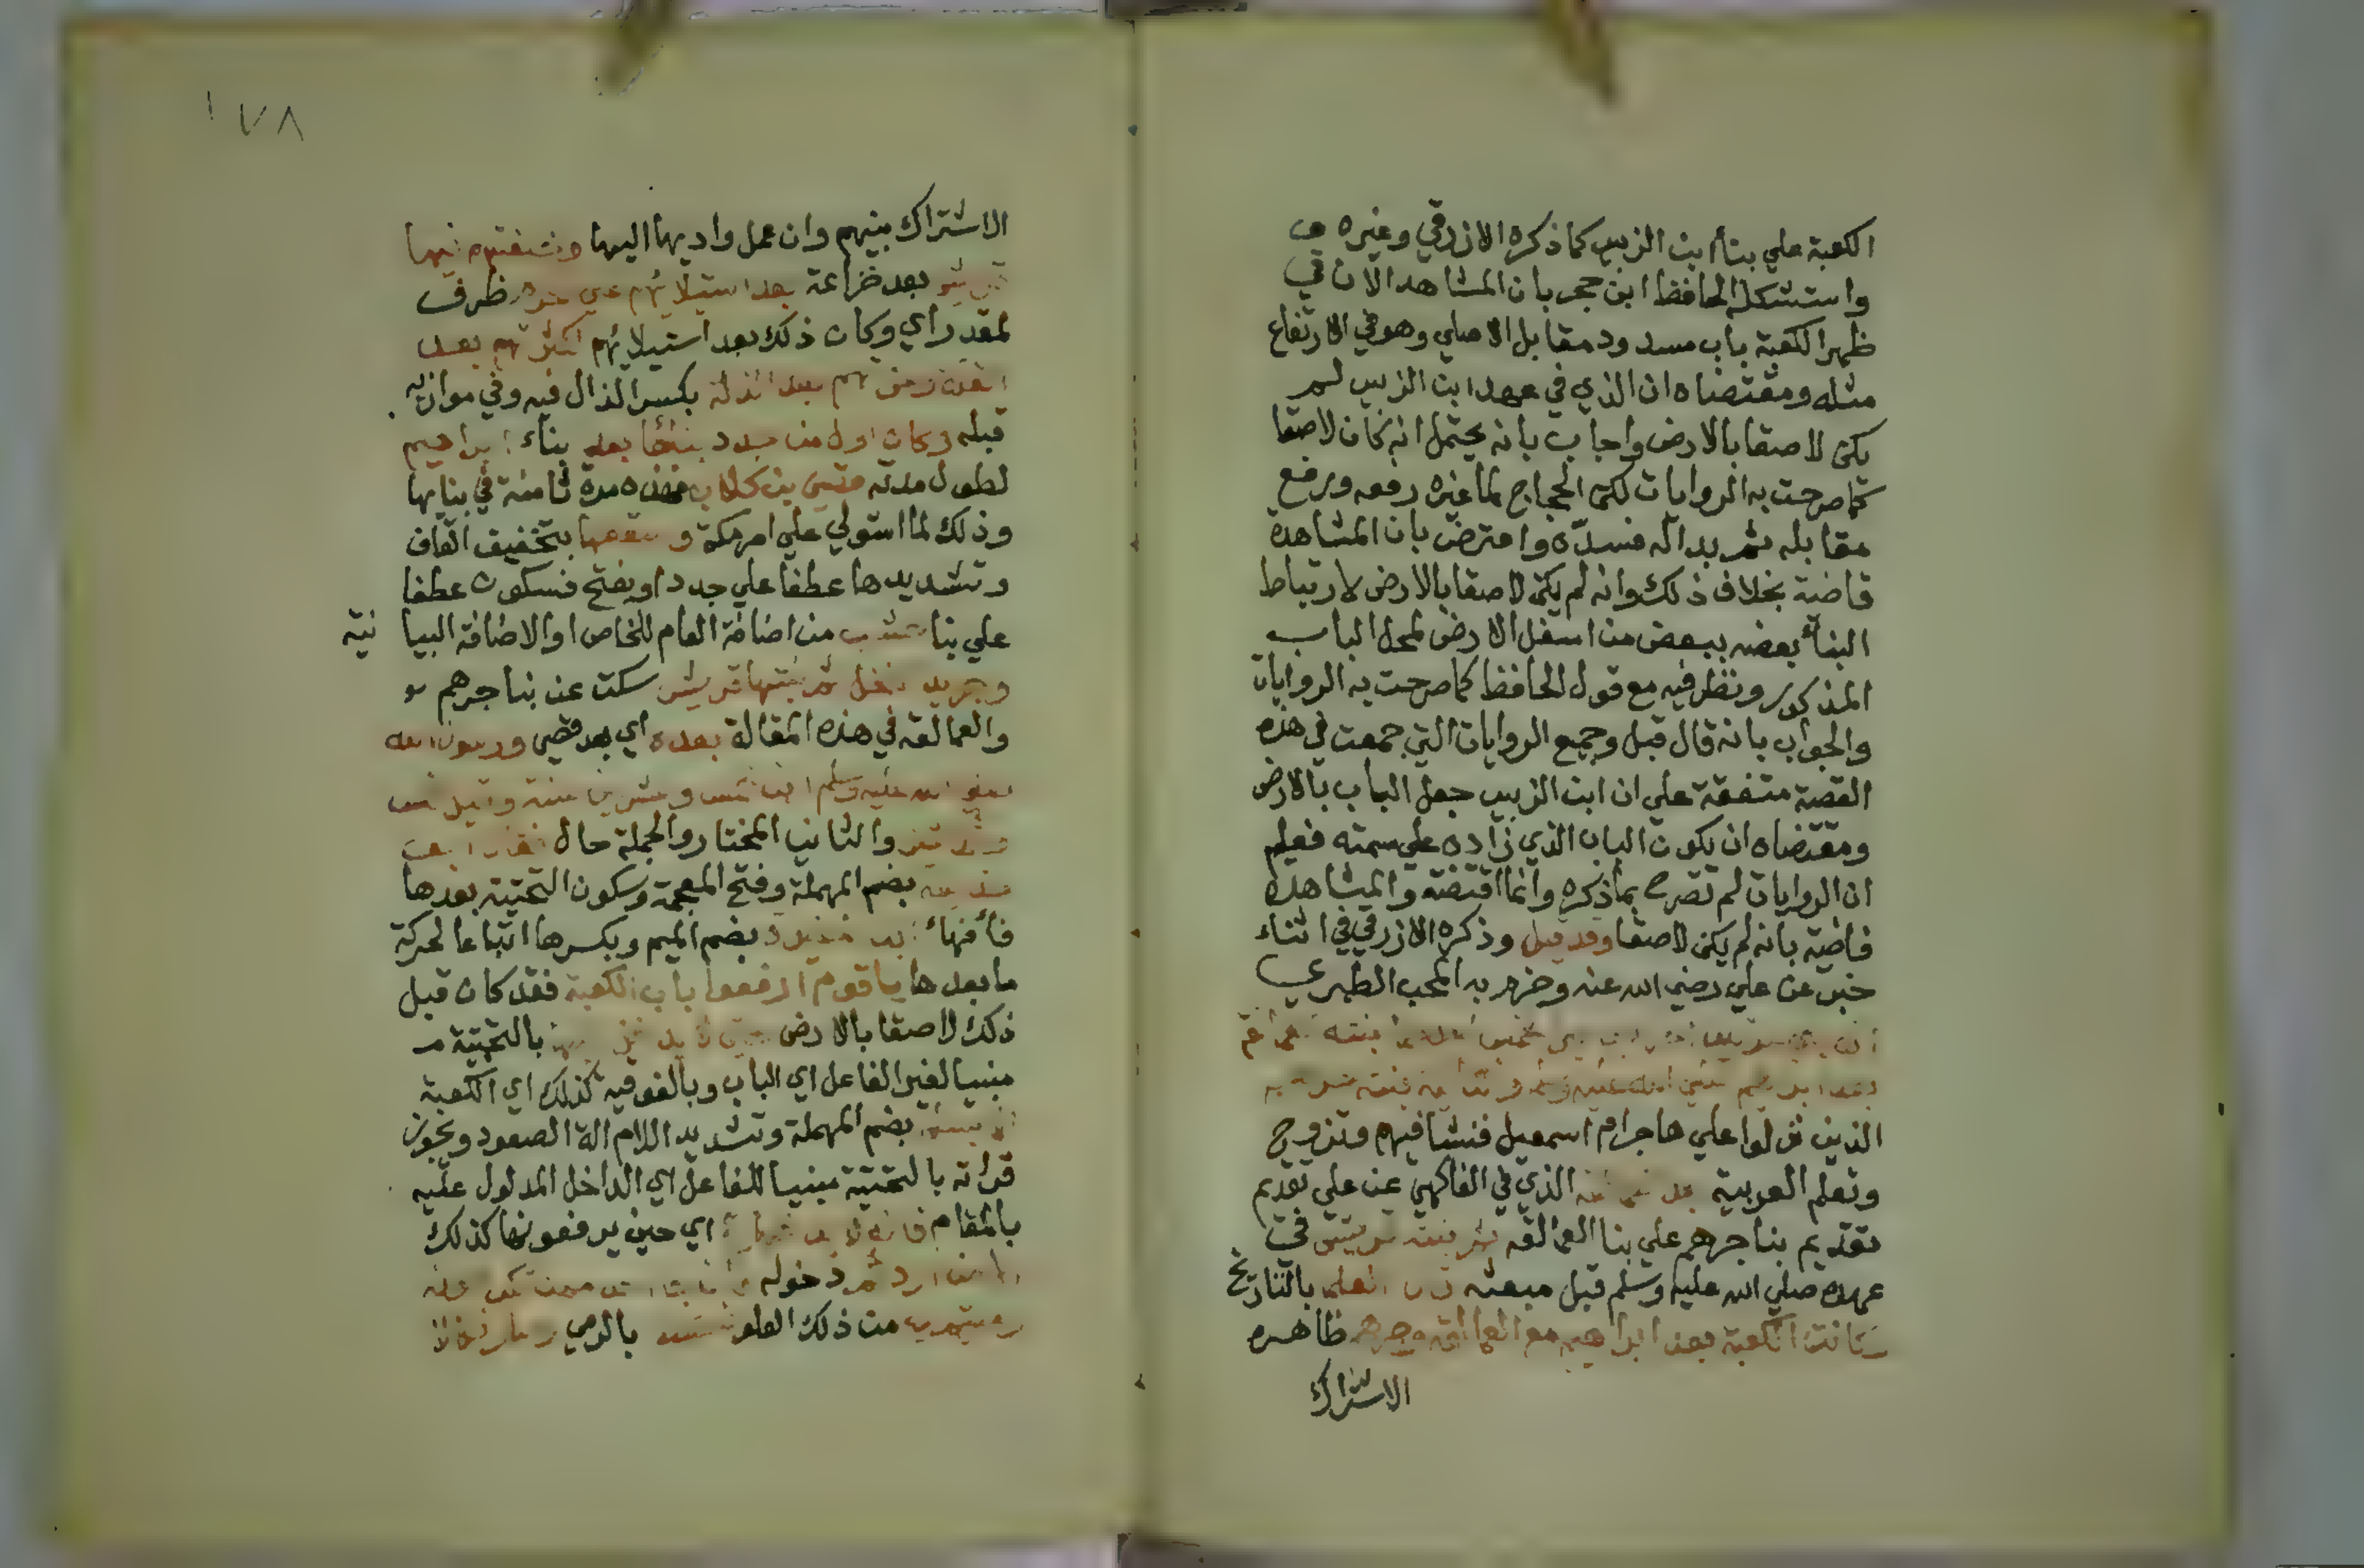 الكعبة علي بناء ابن الزبير كما ذكره الازرقي وغيره
واستشكل الحافظ ابن حجر بان المشاهد الان في
ظهر الكعبة باب مسدود مقابل الاصلي وهو في الارتفاع
مثله ومقتضاه ان الذي في عهد ابن الزبير لم
يكن لاصقا بالارض واجاب بانه يحتمل انه كان لاصقا
كما صرحت به الروايات لكن الحجاج لما غيره رفعه ورفع
مقابله ثم بداله فسدّه واعترض بان المشاهدة
قاضية بخلاف ذلك وانه لم يكن لاصقا بالارض لارتباط
البناء بعضه ببعض من اسفل الارض لمحل الباب
المذكور ونظر فيه مع قول الحافظ كما صرحت به الروايات
والجواب بانه قال قبل وجميع الروايات التي جمعت في هذه
القصة متفقة علي ان ابن الزبير جعل الباب بالارض
ومقتضاه ان يكون الباب الذي زاده علي سمته فعلم
ان الروايات لم تصرح بما ذكره وانما اقتضته والمشاهدة
قاضية بانه لم يكن لاصقا وقد قيل وذكره الازرقي في اثناء
خبر عن علي رضي الله عنه وجزم به المحب الطبري
الذين نزلوا علي هاجر ام اسمعيل فنشا فيهم وتزوج
وتعلم العربية الذي في الفاكهي عن علي تقديم
تقديم بنا جرهم علي بنا العمالقة ثم بنته قريش في
عهده صلي الله عليه وسلم قبل مبعثه العلم بالتاريخ
وكانت الكعبة بعد ابراهيم مع العمالقة وجرهم ظاهره
الاشتراك
١٧٨
الاشتراك بينهم وان عمل واديهما اليهما
بعد خزاعة بعد استيلائهم ظرف
لمقدر اي وكان ذلك بعد استيلائهم كثرتهم بعد
بعد الذلة بكسر الذال فيه وفي موازيه
قبله وكان اول من جدد بناءها بعد بناء ابراهيم
لطول مدته قصي بن كلاب فهذه مدة ثامنة في بنائها
وذلك لما استولي علي امر مكة وسقفها بتخفيف القاف
وتشديدها عطفا علي جدد او بفتح فسكون عطفا
علي بنا من اضافة العام للخاص او الاضافة البيا نية
وجريد نخل ثم بنتها قريش سكت عن بنا جرهم
والعمالقة في هذه المقالة بعده اي بعد قصي ورسول الله
صلي الله عليه وسلم ابن خمس وعشرين سنة وقيل خمس
والثاني المختار والجملة حال
بضم المهملة وفتح المعجمة وسكون التحتية بعدها
فاء فهاء بضم الميم وبكسرها اتباعا لحركة
ما بعدها يا قوم ارفعوا باب الكعبة فقد كان قبل
ذلك لاصقا بالارض بالتحتية
مبنيا لغير الفاعل اي الباب وبالفوقية كذلك اي الكعبة
بضم المهملة وتشديد اللام الة الصعود ويجوز
قراته بالتحتية مبنيا للفاعل اي الداخل المدلول عليه
بالمقام اي حين يرفعونها كذلك
دخوله
من ذلك العلو بالرمي